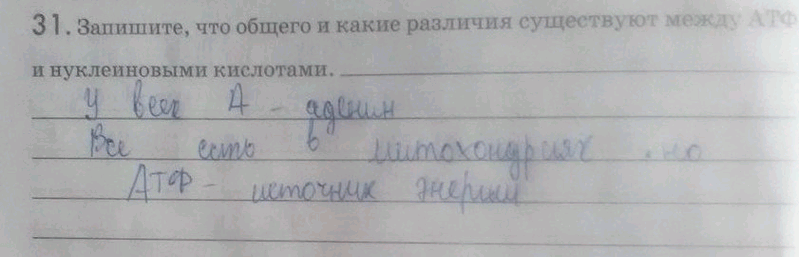 31. Запишите, что общего и какие различия существуют между АТФ
и нуклеиновыми кислотами.
У всех А - аденин
Все есть в митохондриях, но
АТФ - источник энергии